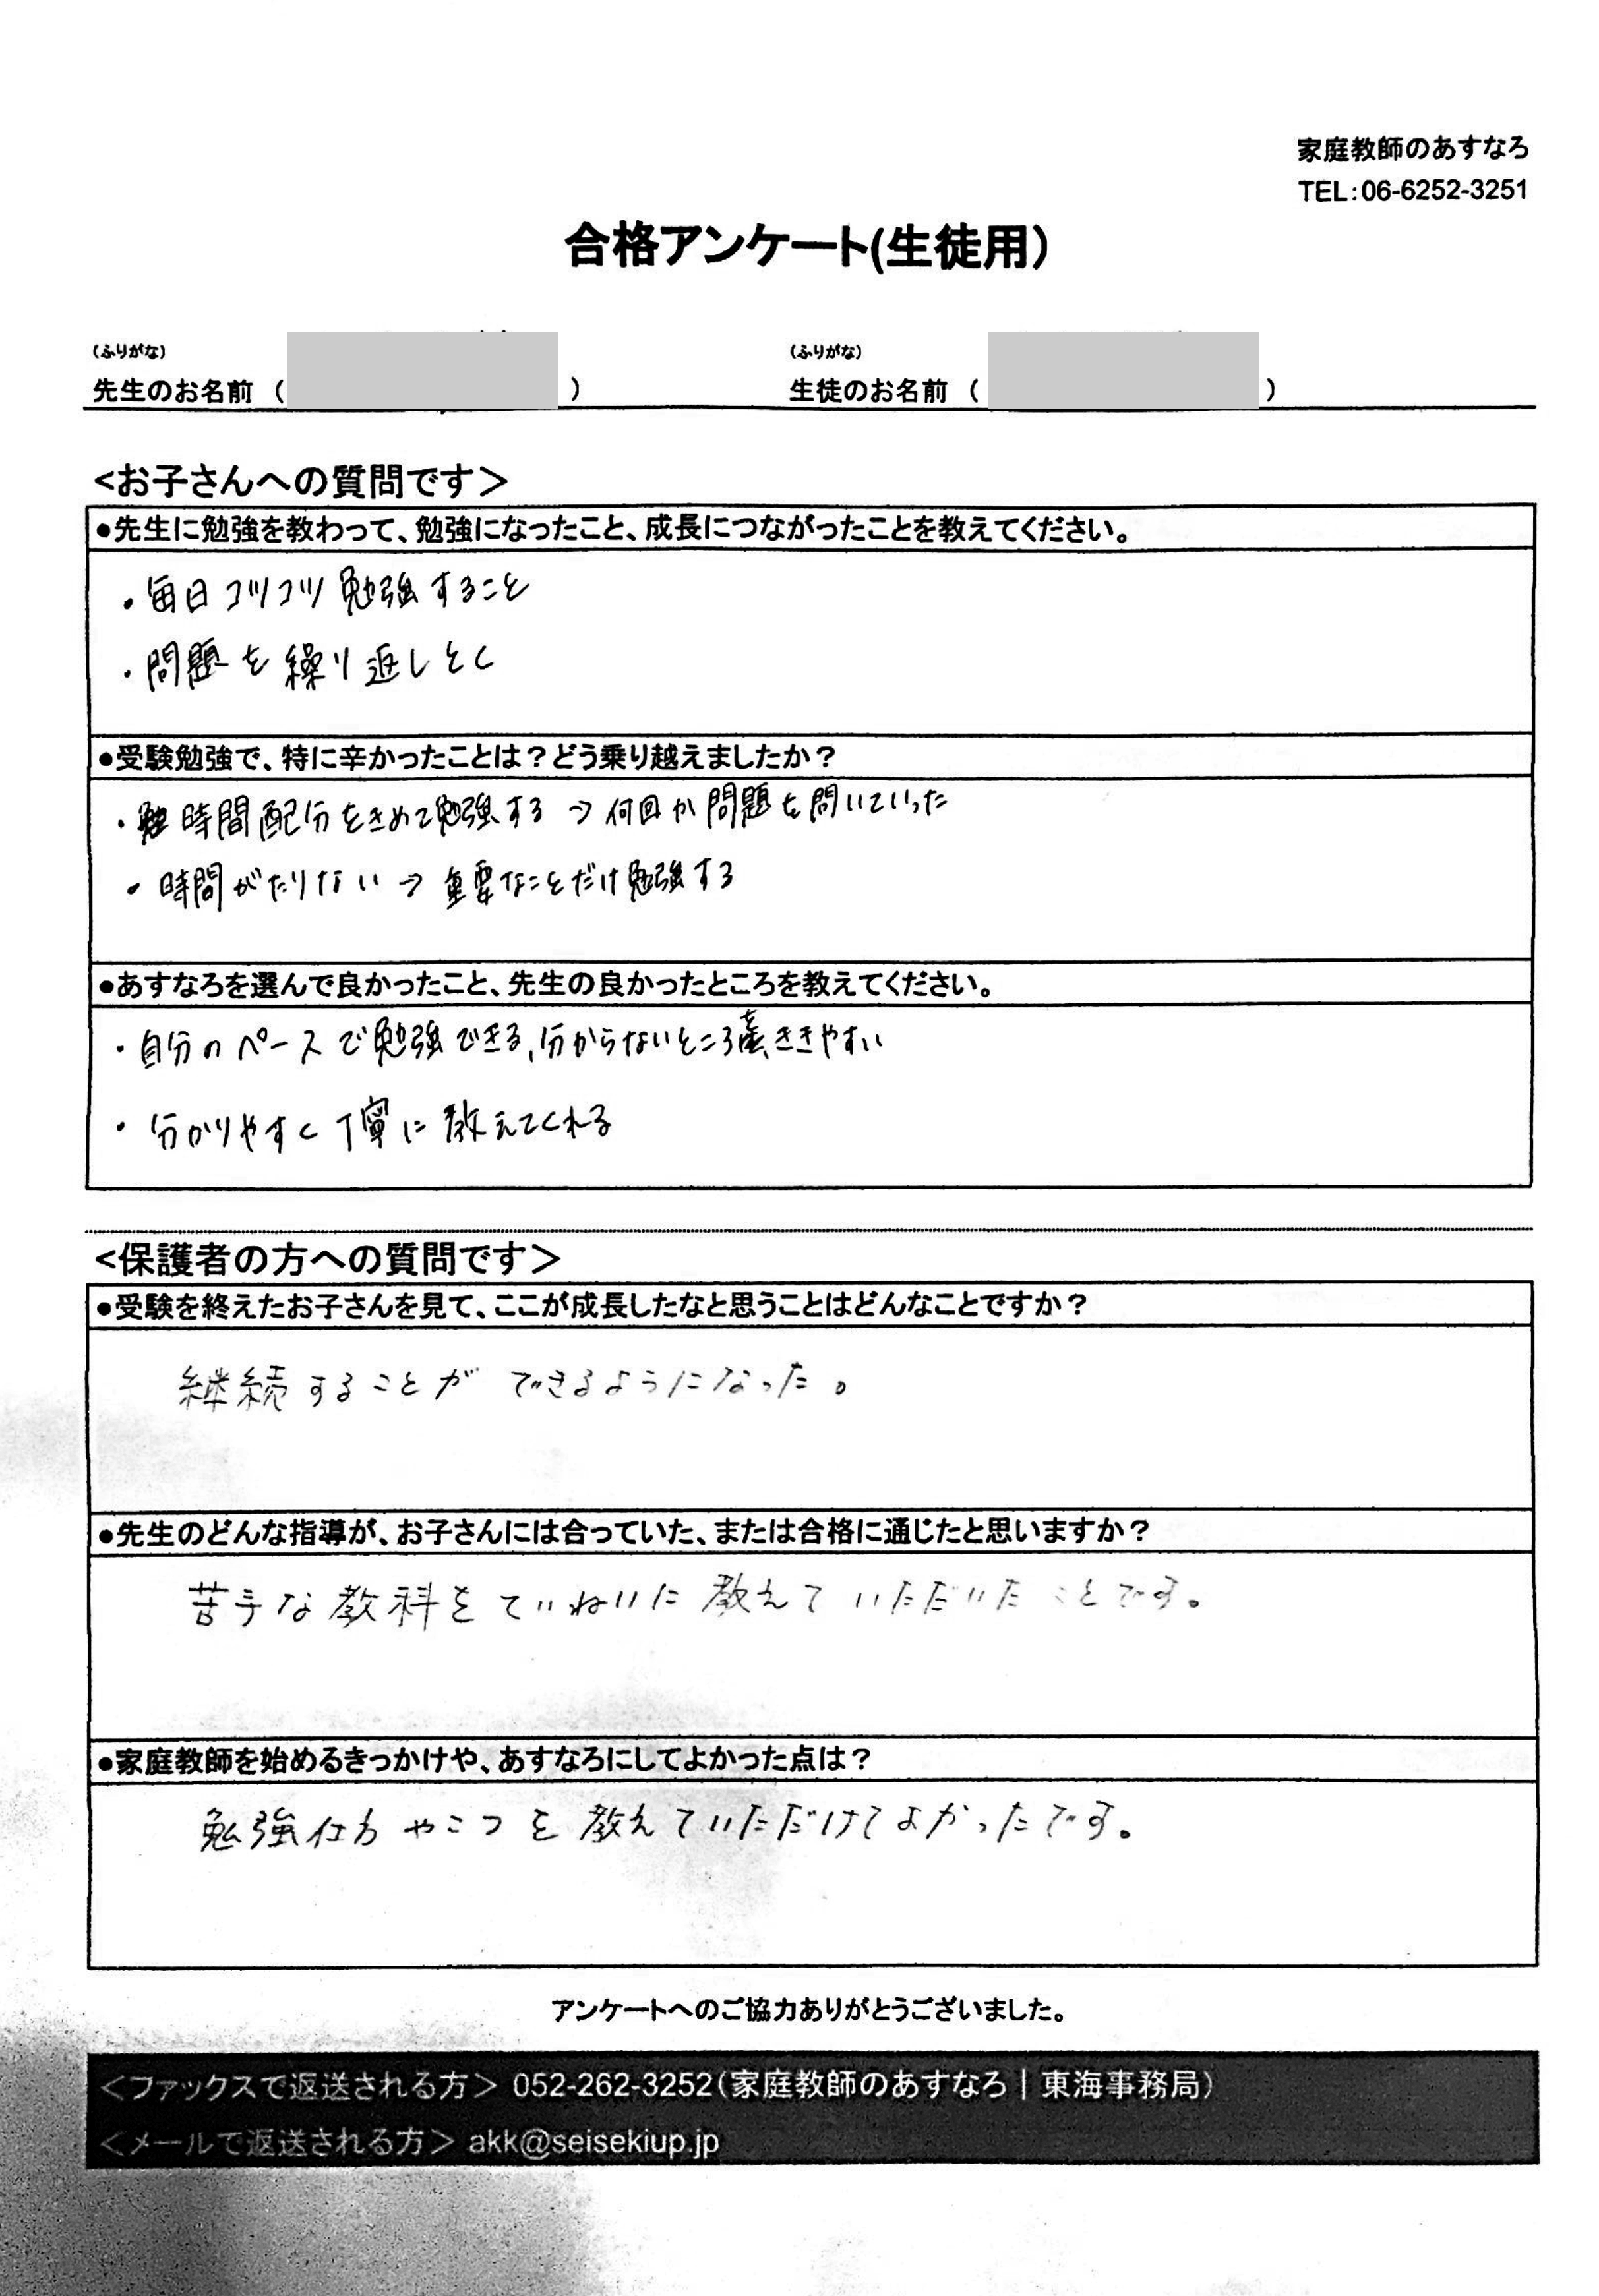 家庭教師のあすなろ
TEL:06-6252-3251
合格アンケート(生徒用)
(ふりがな) (ふりがな)
先生のお名前 ( ) 生徒のお名前 ( )
<お子さんへの質問です>
●先生に勉強を教わって、勉強になったこと、成長につながったことを教えてください。
・毎日コツコツ勉強すること
・問題を繰り返しとく
●受験勉強で、特に辛かったことは?どう乗り越えましたか?
・時間配分をきめて勉強する→何回か問題を問いていった
・時間がたりない→重要なことだけ勉強する
●あすなろを選んで良かったこと、先生の良かったところを教えてください。
・自分のペースで勉強できる、分からないところを、ききやすい
・分かりやすく丁寧に教えてくれる
<保護者の方への質問です>
●受験を終えたお子さんを見て、ここが成長したなと思うことはどんなことですか?
継続することができるようになった。
●先生のどんな指導が、お子さんには合っていた、または合格に通じたと思いますか?
苦手な教科をていねいに教えていただいたことです。
●家庭教師を始めるきっかけや、あすなろにしてよかった点は?
勉強仕方やこつを教えていただけてよかったです。
アンケートへのご協力ありがとうございました。
<ファックスで返送される方> 052-262-3252(家庭教師のあすなろ|東海事務局)
<メールで返送される方> akk@seisekiup.jp